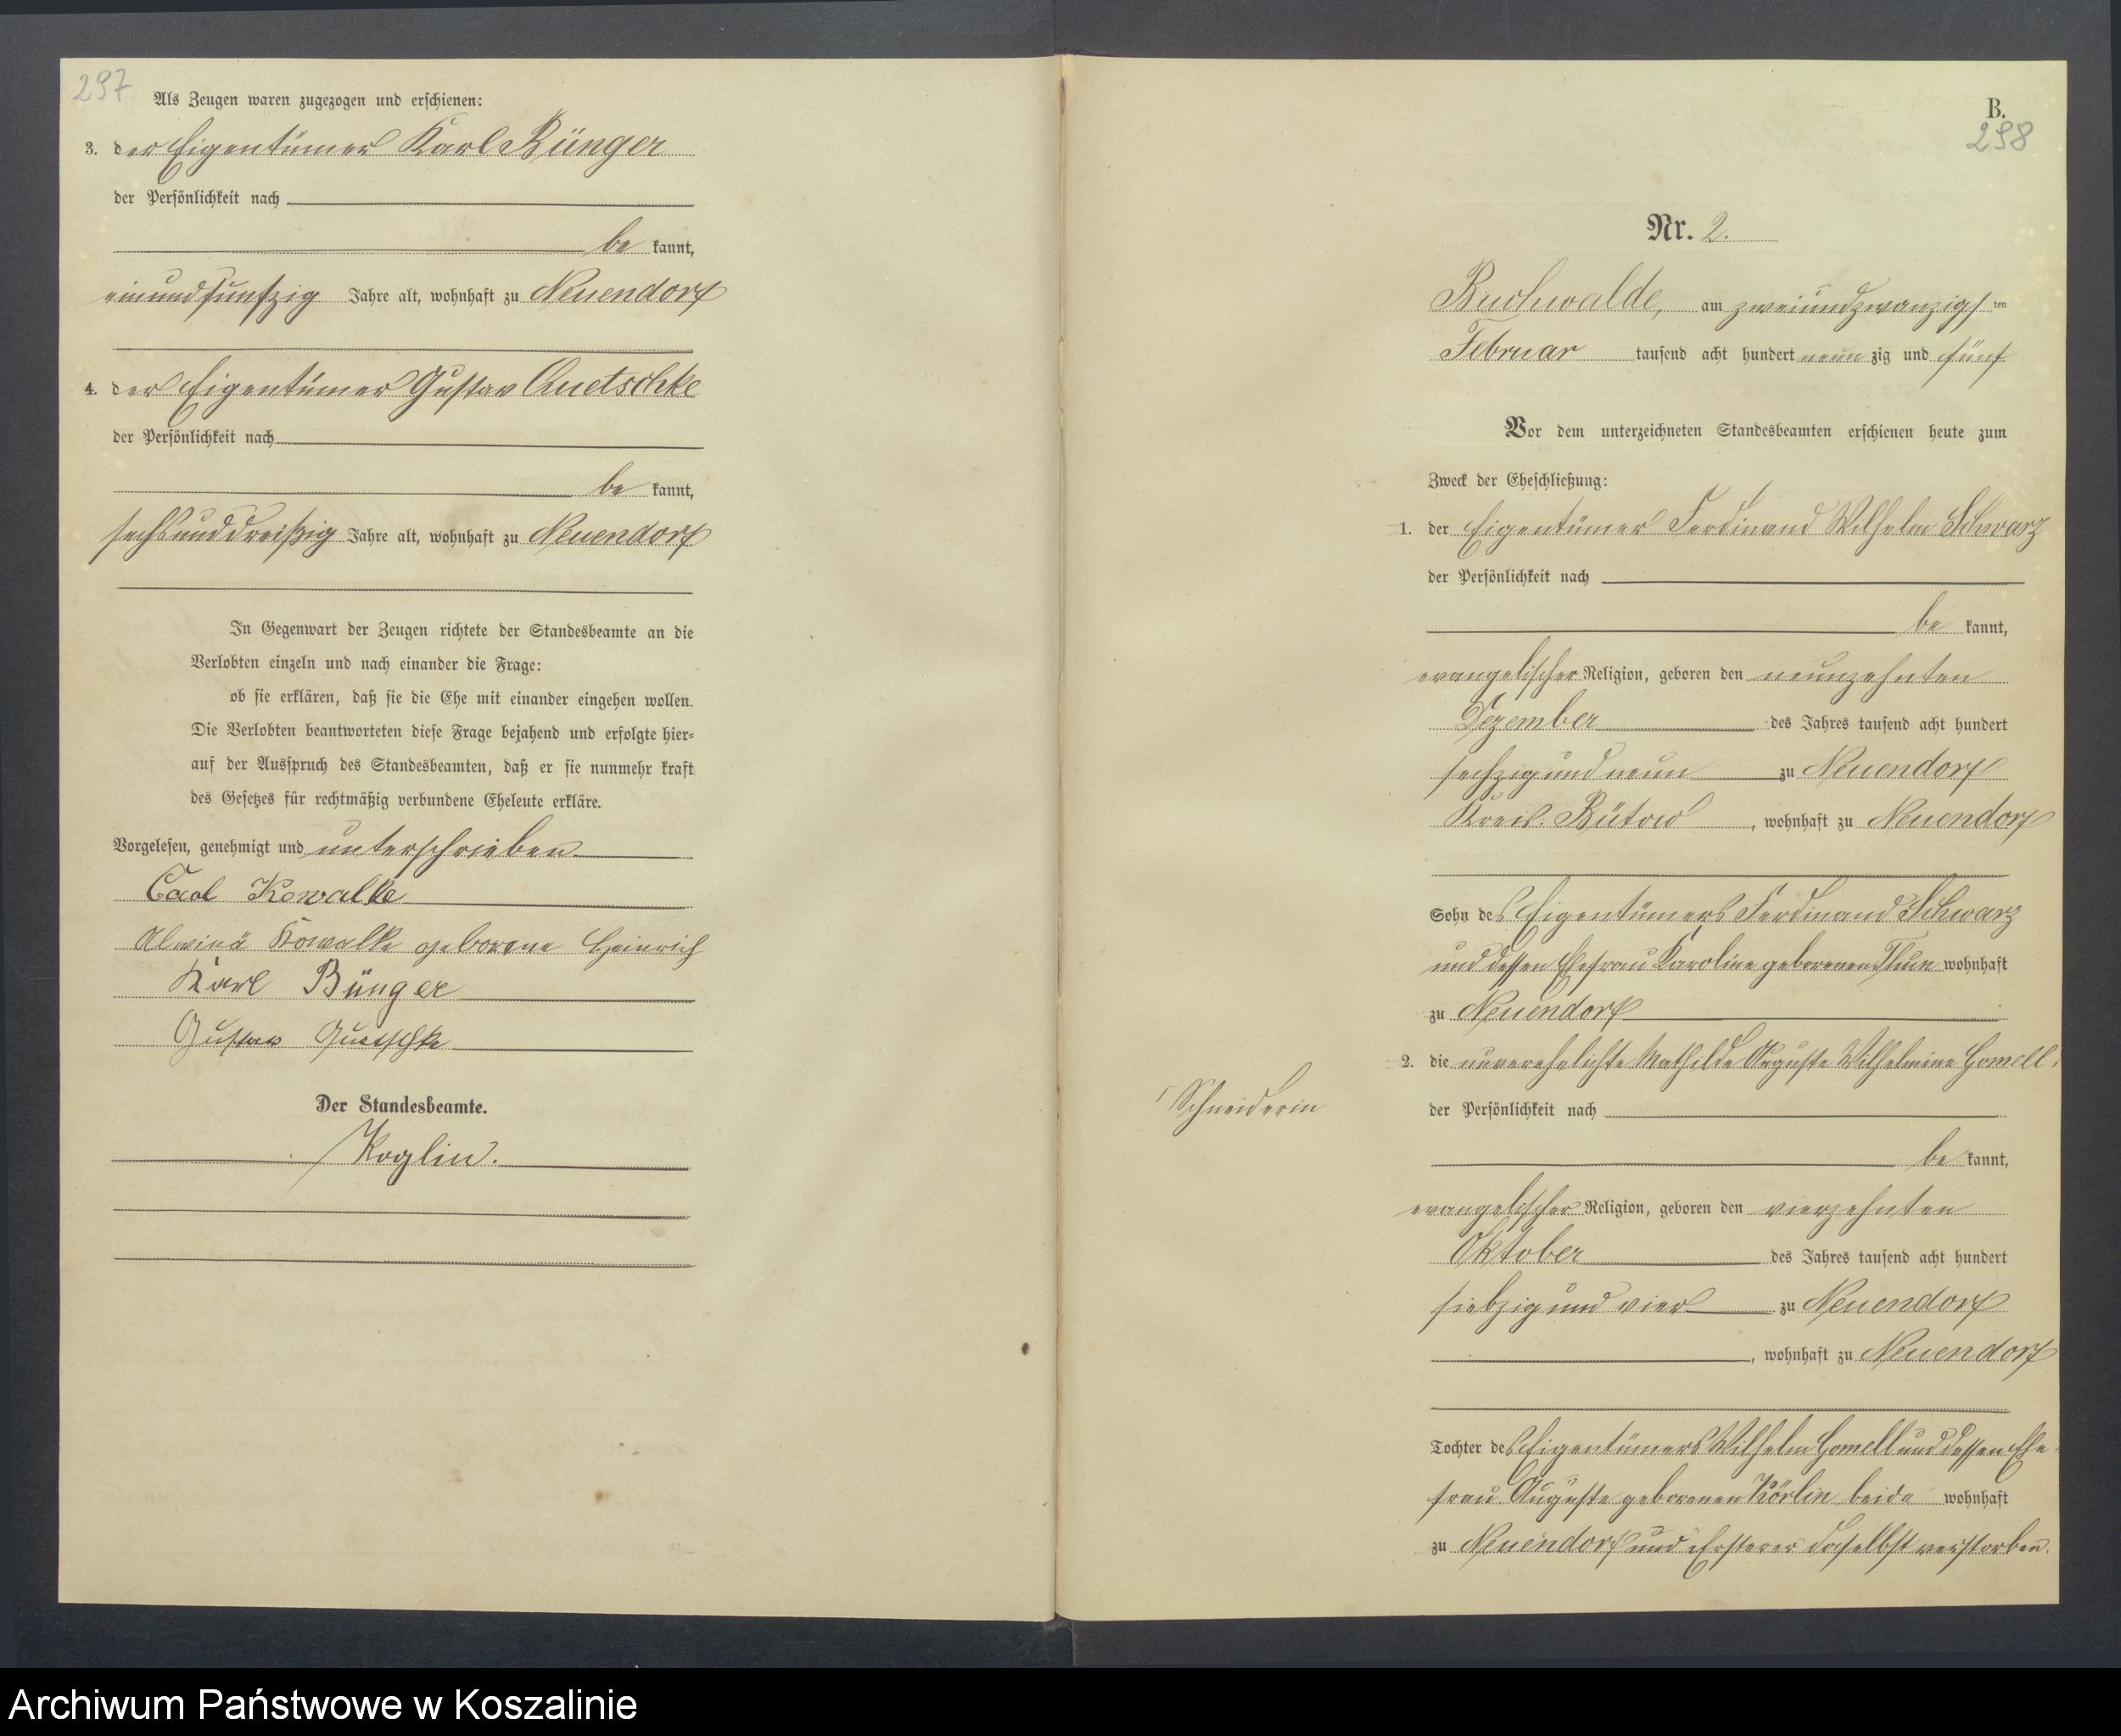 297
Als Zeugen waren zugezogen und erschienen:
3. der Eigentümer Karl Bünger
der Persönlichkeit nach
be kannt,
einundfünfzig Jahre alt, wohnhaft zu Neuendorf
4. der Eigentümer Gustav Quetschke
der Persönlichkeit nach
be kannt,
sechsunddreißig Jahre alt, wohnhaft zu Neuendorf
In Gegenwart der Zeugen richtete der Standesbeamte an die
Verlobten einzeln und nach einander die Frage:
ob sie erklären, daß sie die Ehe mit einander eingehen wollen.
Die Verlobten beantworteten diese Frage bejahend und erfolgte hier-
auf der Ausspruch des Standesbeamten, daß er sie nunmehr kraft
des Gesetzes für rechtmäßig verbundene Eheleute erkläre.
Vorgelesen, genehmigt und unterschrieben
Carl Kowalke
Alwine Kowalke geborene Heinrich
Karl Bünger
Gustav Quetschke
Der Standesbeamte.
Koglin.
B.
298
Nr. 2.
Buchwalde, am zweiundzwanzigsten
Februar tausend acht hundert neunzig und fünf
Vor dem unterzeichneten Standesbeamten erschienen heute zum
Zweck der Eheschließung:
1. der Eigentümer Ferdinand Wilhelm Schwarz
der Persönlichkeit nach
be kannt,
evangelischer Religion, geboren den neunzehnten
Dezember des Jahres tausend acht hundert
sechzig und neun zu Neuendorf
Kreis Bütow, wohnhaft zu Neuendorf
Sohn des Eigentümers Ferdinand Schwarz
und dessen Ehefrau Karoline geborenen Thun wohnhaft
zu Neuendorf
2. die unverehelichte Mathilde Auguste Wilhelmine Gomell,
Schneiderin
der Persönlichkeit nach
be kannt,
evangelischer Religion, geboren den vierzehnten
Oktober des Jahres tausend acht hundert
siebzig und vier zu Neuendorf
, wohnhaft zu Neuendorf
Tochter des Eigentümers Wilhelm Gomell und dessen Ehe-
frau Auguste geborenen Körlin beide wohnhaft
zu Neuendorf und Ersterer daselbst verstorben.
Archiwum Państwowe w Koszalinie